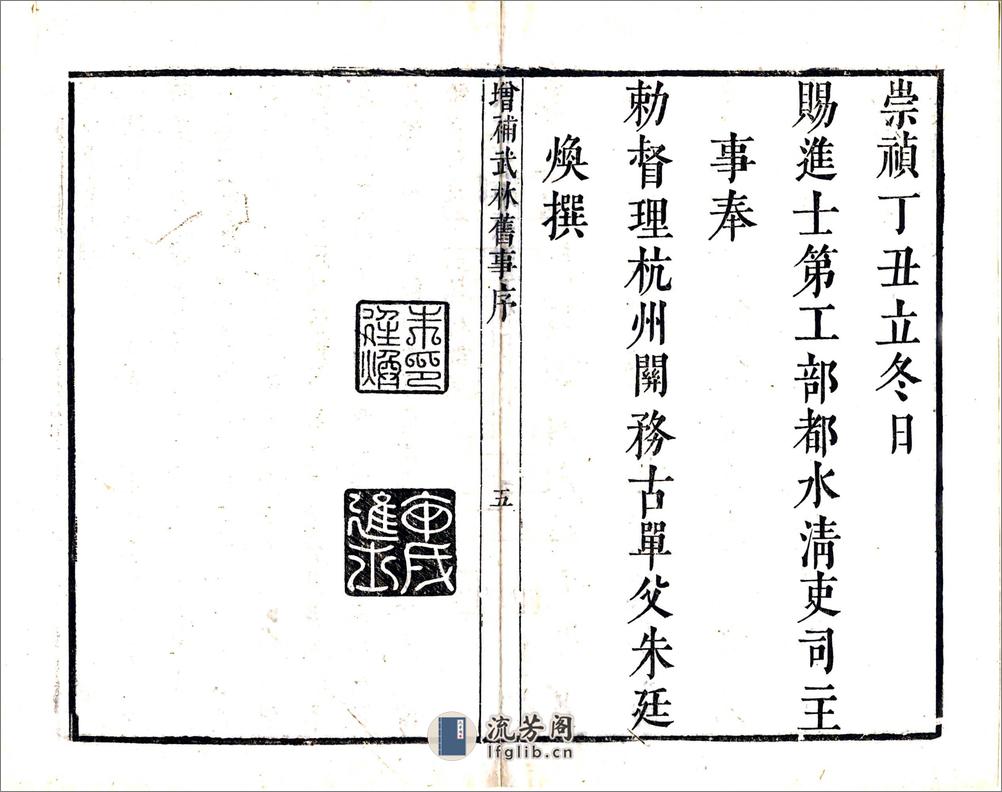 崇禎丁丑立冬日
賜進士第工部都水清吏司主
事奉
勅督理杭州關務古單父朱廷
煥撰
增補武林舊事序
五
朱印
廷煥
甲戌
進士
流芳阁
lfglib.cn